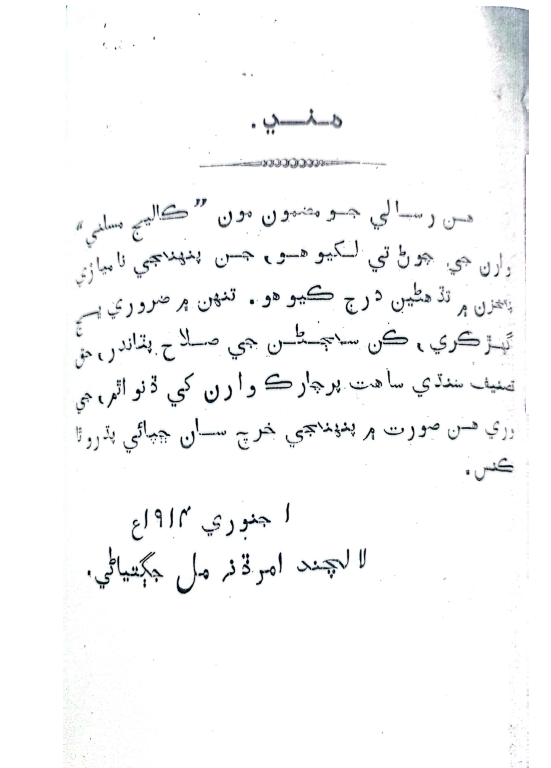 مـنـــي.
هـن رسـالي جـو مضمون مون ”ڪاليج مسلني“
وارن جي چوڻ تي لـکيو هـو، جـن پنهنجي ناميازي
۾ تڏهنين درج ڪيو هو. تنهن ۾ ضروري
ڪري، ڪن ساڄـڻـن جي صـلاح پٽاندر، حق
تصنيف سنڌي ساهت پرچارڪ وارن کي ڏنو اٿم، جي
وري هـن صورت ۾ پنهنجي خرچ سـان ڇپائي پڌرو ٿا
ڪنس.
١ جنوري ١٩١٤ع
لالچند امرڏنہ مل جڳتياڻي.